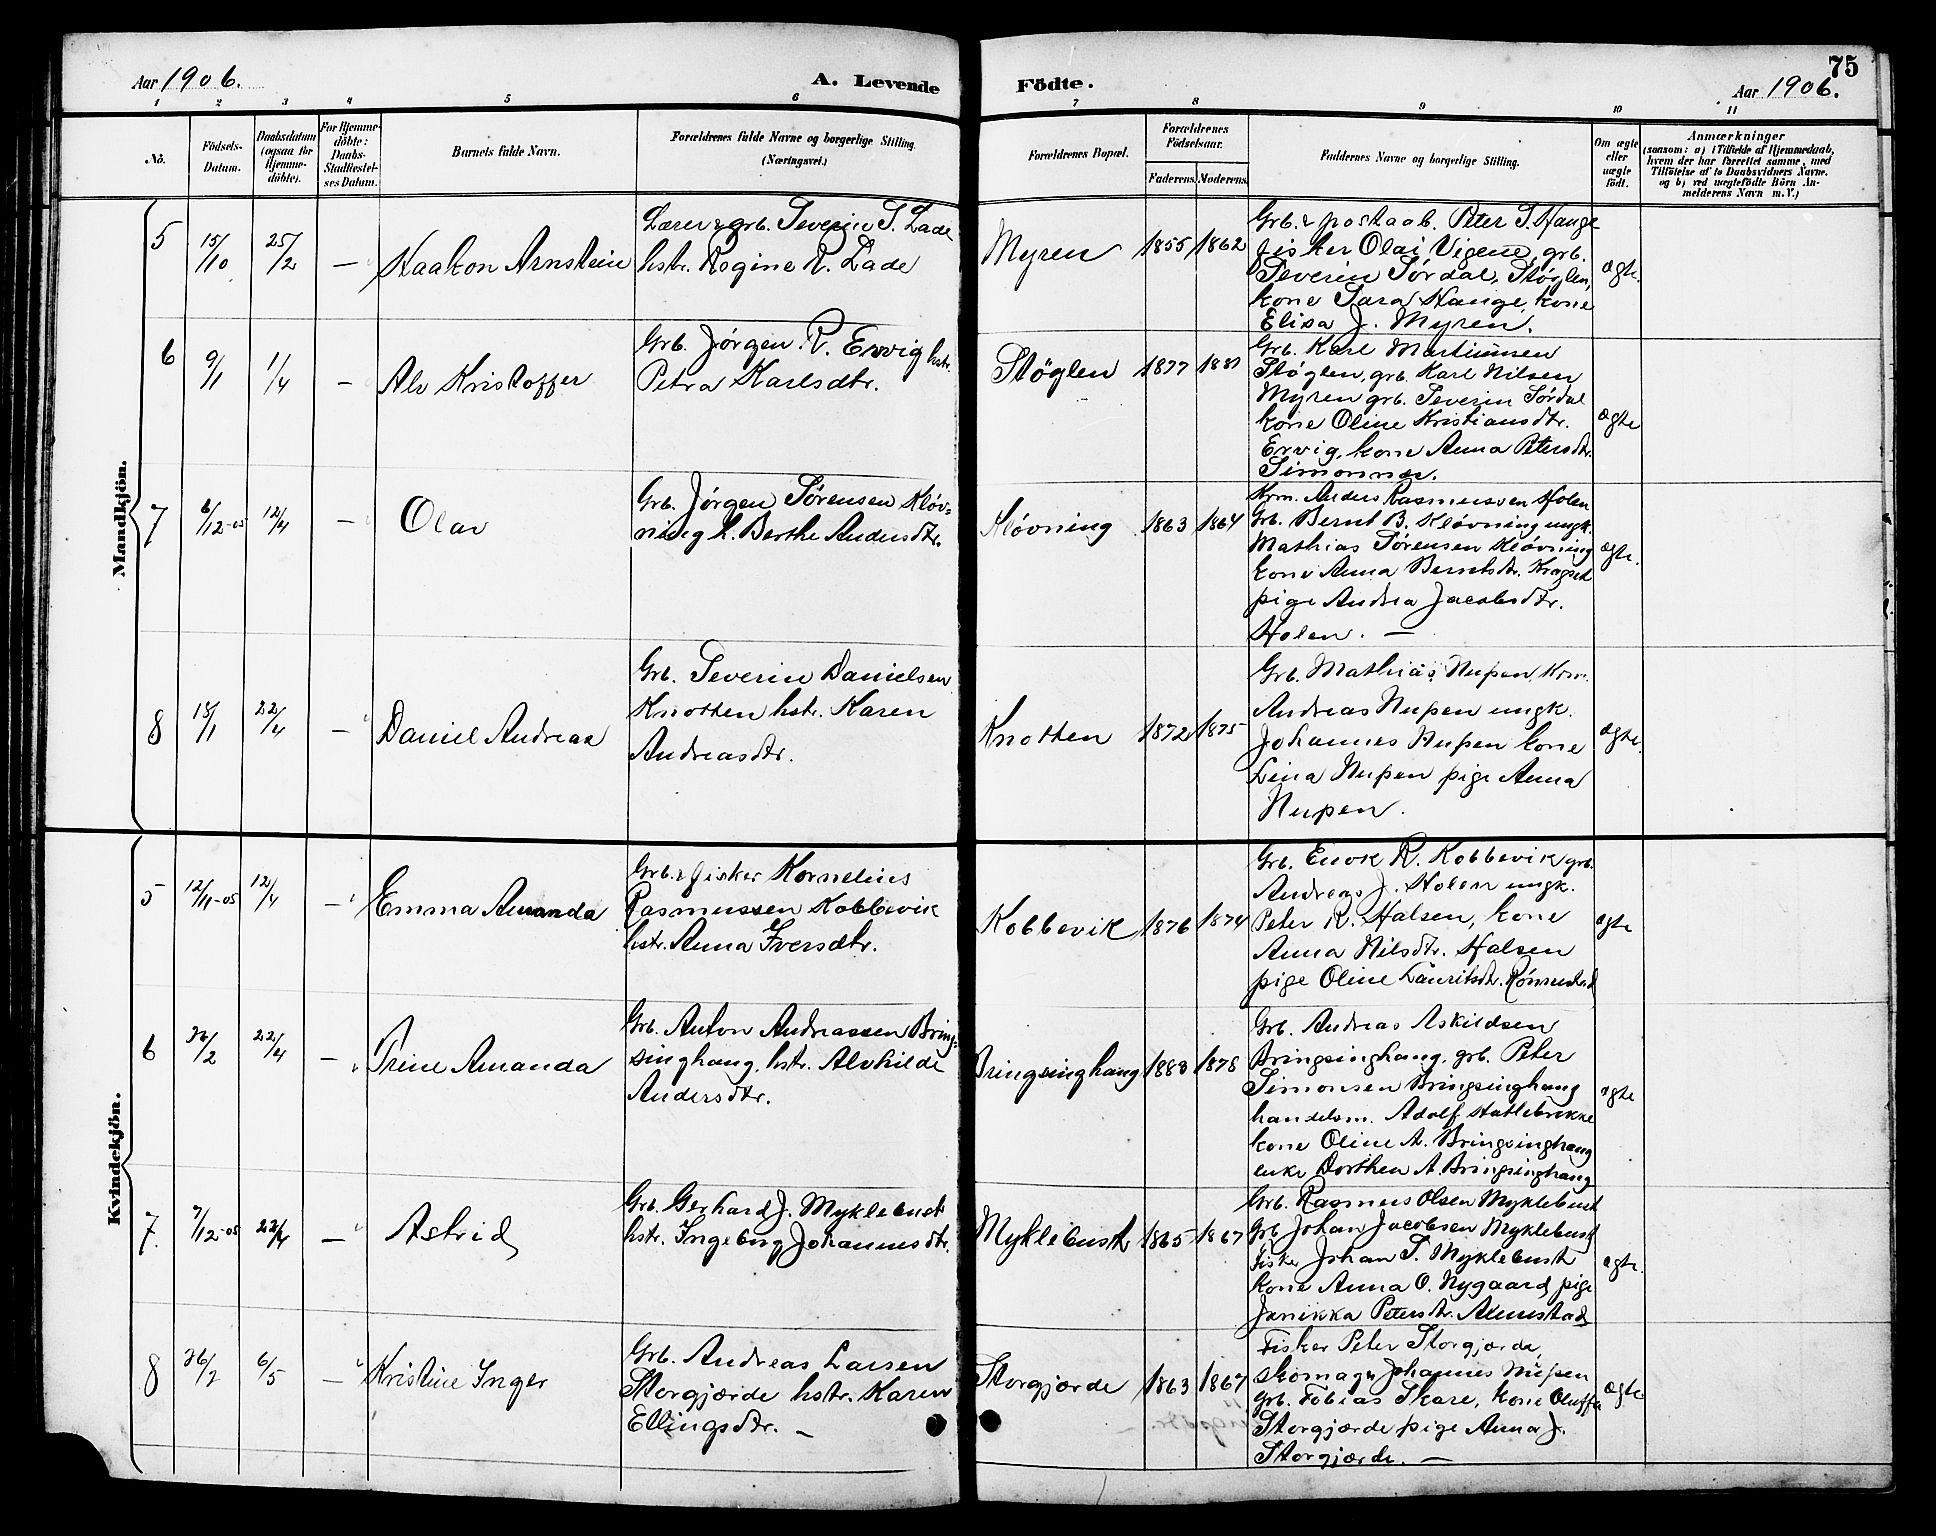 Aar 1906.
A. Levende Födte.
75
Aar 1906.
1 2 3 4 5 6 7 8 9 10 11
No.
Födsels-
Datum.
Daabsdatum
(ogsaa for
Hjemme-
döbte).
For Hjemme-
döbte:
Daabs-
Stadfæstel-
ses Datum.
Barnets fulde Navn.
Forældrenes fulde Navne og borgerlige Stilling.
(Næringsvei.)
Forældrenes Bopæl.
Forældrenes
Födselsaar.
Faderens. Moderens.
Faddernes Navne og borgerlige Stilling.
Om ægte
eller
uægte
födt.
Anmærkninger
(saasom: a) i Tilfælde af Hjemmedaab,
hvem der har forrettet samme, med
Tilföielse af to Daabsvidners Navne.
og b) ved uægtefödte Börn An-
melderens Navn m.V.)
Mandkjön.
5
15/10
25/2
—
Haakon Arnstein
Lærer & grb. Severin S. Lade
hstr. Rogine R. Lade
Myren
1855
1862
Grb. & postaab. Peter S. Hauge
fisker Olai Vigene, grb.
Severin Sørdal, Støglen,
kone Sara Hauge, kone
Elisa J. Myren.
ægte.
6
9/1
1/4
—
Alv Kristoffer
Grb. Jørgen R. Ervig hstr.
Petra Karlsdtr.
Støglen
1877
1881
Grb. Karl Martinusen
Støglen, grb. Karl Nilsen
Myren grb. Severin Sørdal
kone Oline Kristiansdtr.
Ervig, kone Anna Petersdtr.
Simonnes.
ægte
7
6/12-05
12/4
—
Olav
Grb. Jørgen Sørensen Kløv-
ning h. Berthe Andersdtr.
Kløvning
1863
1864
Krm. Anders Rasmussen Holen
Grb. Bernt B. Kløvning ungk.
Mathias Sørensen Kløvning
kone Anna Berntsdtr. Kragset
pige Andrea Jacobsdtr.
Holen. —
ægte.
8
18/1
22/4
—
Daniel Andreas
Grb. Severin Danielsen
Knotten hstr. Karen
Andreasdtr.
Knotten
1872
1875
Grb. Mathias Nupen, Krm.
Andreas Nupen ungk.
Johannes Nupen kone
Lina Nupen pige Anna
Nupen.
ægte.
Kvindekjön.
5
12/11-05
12/4
—
Emma Amanda
Grb. & fisker Kornelius
Rasmussen Kobbevik
hstr. Anna Iversdtr.
Kobbevik
1876
1874
Grb. Enok R. Kobbevik grb.
Andreas J. Holen ungk.
Peter R. Halsen, kone
Anna Nilsdtr. Halsen
pige Oline Lauritsdtr. Rønnestad
ægte
6
22/4
—
Trine Amanda
Grb. Anton Andreassen Bring-
singhaug, hstr. Alvhilde
Andersdtr.
Bringsinghaug
1883
1878
Grb. Andreas Askildsen
Bringsinghaug, grb. Peter
Simonsen Bringsinghaug
handelsm. Adolf Hatlebrekke
kone Oline A. Bringsinghaug
enke Dorthea A. Bringsinghaug
ægte
7
7/12-05
22/4
—
Astrid
Grb. Gerhard J. Myklebust
hstr. Ingeborg Johannesdtr.
Myklebust
1865
1867
Grb. Rasmus Olsen Myklebust
Grb. Johan Jacobsen Myklebust
fisker Johan S. Myklebust
kone Anna O. Nygaard, pige
Janikka Petersdtr. Almestad
ægte.
8
26/2
6/5
—
Kristine Inger
Grb. Andreas Larsen
Storgjærde hstr. Karen
Ellingsdtr. —
Storgjærde
1863
1867
Fisker Peter Storgjærde,
skomager Johannes Nupen
grb. Tobias Skare, kone Oluffa
Storgjærde pige Anna J.
Storgjærde. —
ægte